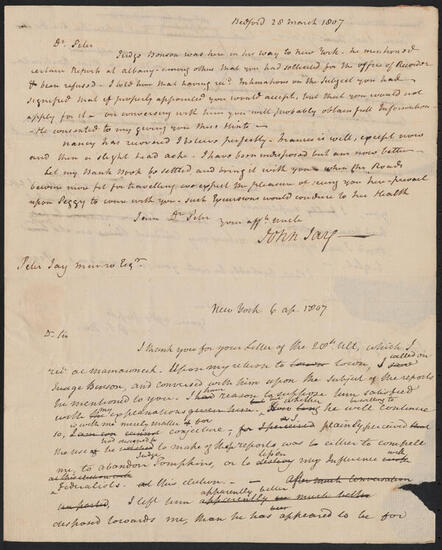 Bedford 28 March 1807
Dr. Peter
Judge Benson was here in his way to New York. he mentioned
certain Reports at albany - among others that you had sollicited for the office of Recorder
& been refused - I told him that having recd. Intimations on the Subject you had
signified that if properly appointed you would accept, but that you would not
apply for it - on conversing with him you will probably obtain full Information
- He consented to my giving you these Hints -
Nancy has recovered I believe perfectly. Frances is well, except now
and then a slight head ache. I have been indisposed but am now better -
Let my Bank Book be settled and bring it with you when the Roads
become more fit for travelling. we expect the pleasure of seeing you here - prevail
upon Peggy to come with you - such Excursions would conduce to her Health
I am Dr. Peter your affte. uncle
John Jay -
Peter Jay Munro Esqr.
New York 6 ap. 1807
Dr Sir
I thank you for your Letter of the 28th. Ult, which I
recd. at mamaroneck. Upon my return to town, I called on
Judge Benson, and conversed with him upon the subject of the reports
he mentioned to you. I had reason to suppose him satisfied
with my explanations - whether he will continue
so, is with me much matter for conjecture - for I plainly perceived
the use he had intended to make of these reports was to either to compell
me, to abandon Judge Tompkins, or to lessen my Influence with
Federalists at this election -
I left him apparently better
disposed towards me, than he has appeared to be for